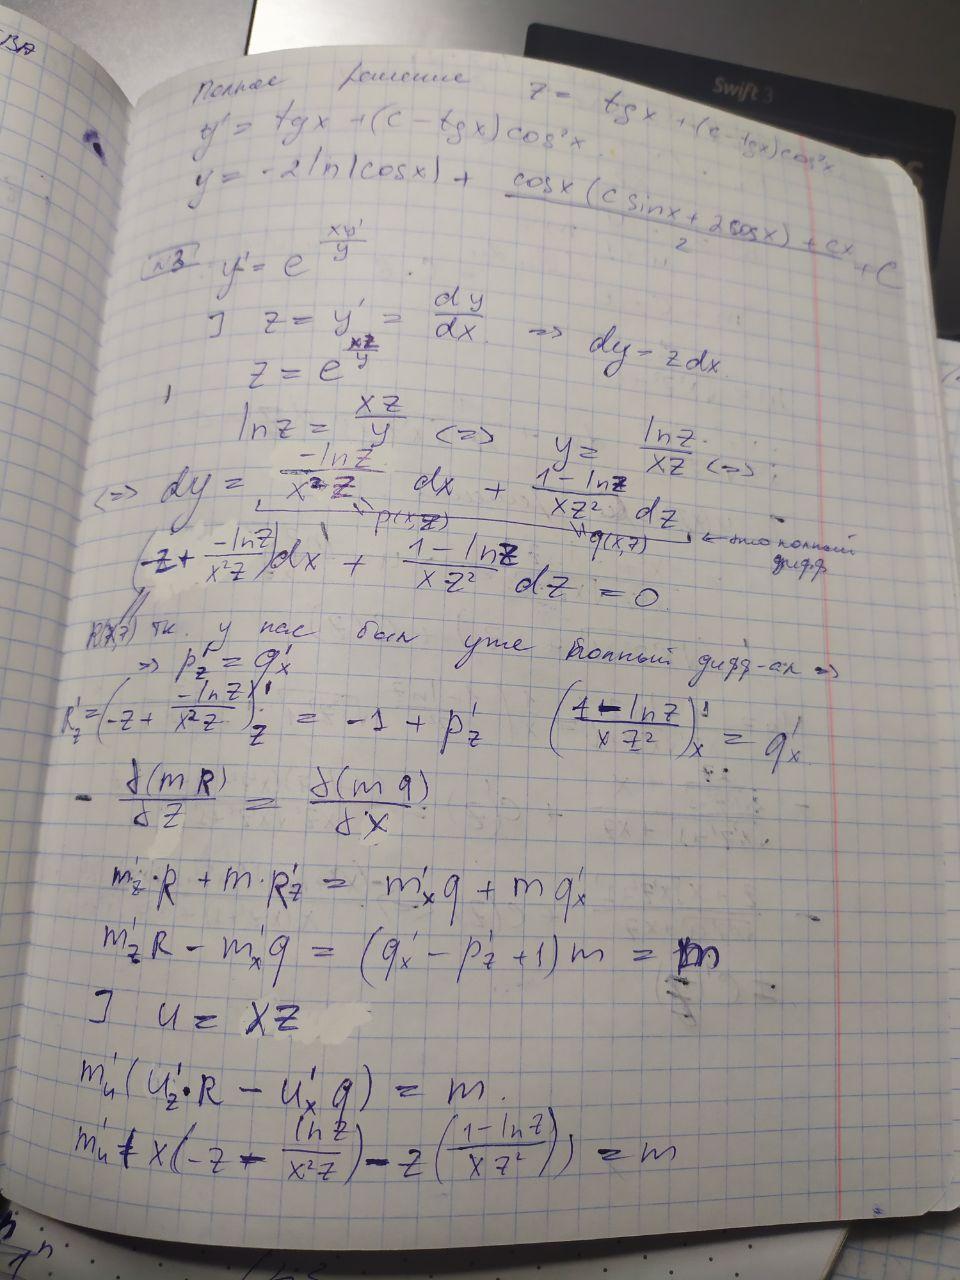 ВА
Swift 3
Полное решение z = tgx + (c - tgx) cos²x
y' = tgx + (c - tgx) cos²x
y = -2 ln(cosx) + (cosx (c sinx + 2cosx) + cx)/2 + C
№3 y' = e^(xy'/y)
] z = y' = dy/dx => dy = z dx
z = e^(xz/y)
ln z = xz/y <=> y = ln z/xz <=>
<=> dy = -ln z/x²z dx + 1 - ln z/xz² dz
p(x,z) q(x,z) ← это полный дифф
(-z + -ln z/x²z) dx + 1 - ln z/xz² dz = 0
R(x,z) т.к. у нас был уже полный дифф-ал =>
=> p'z = q'x
R'z = (-z + -ln z/x²z)'z = -1 + p'z (1 - ln z/xz²)'x = q'x
- ∂(mR)/∂z = ∂(mq)/∂x
m'z·R + m·R'z = m'x q + m q'x
m'z R - m'x q = (q'x - p'z + 1) m = m
] u = xz
m'u (u'z·R - u'x q) = m.
m'u + x(-z - ln z/x²z) - z(1 - ln z/xz²)) = m